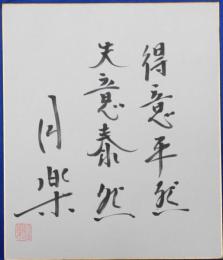 得意平然
失意泰然
円楽